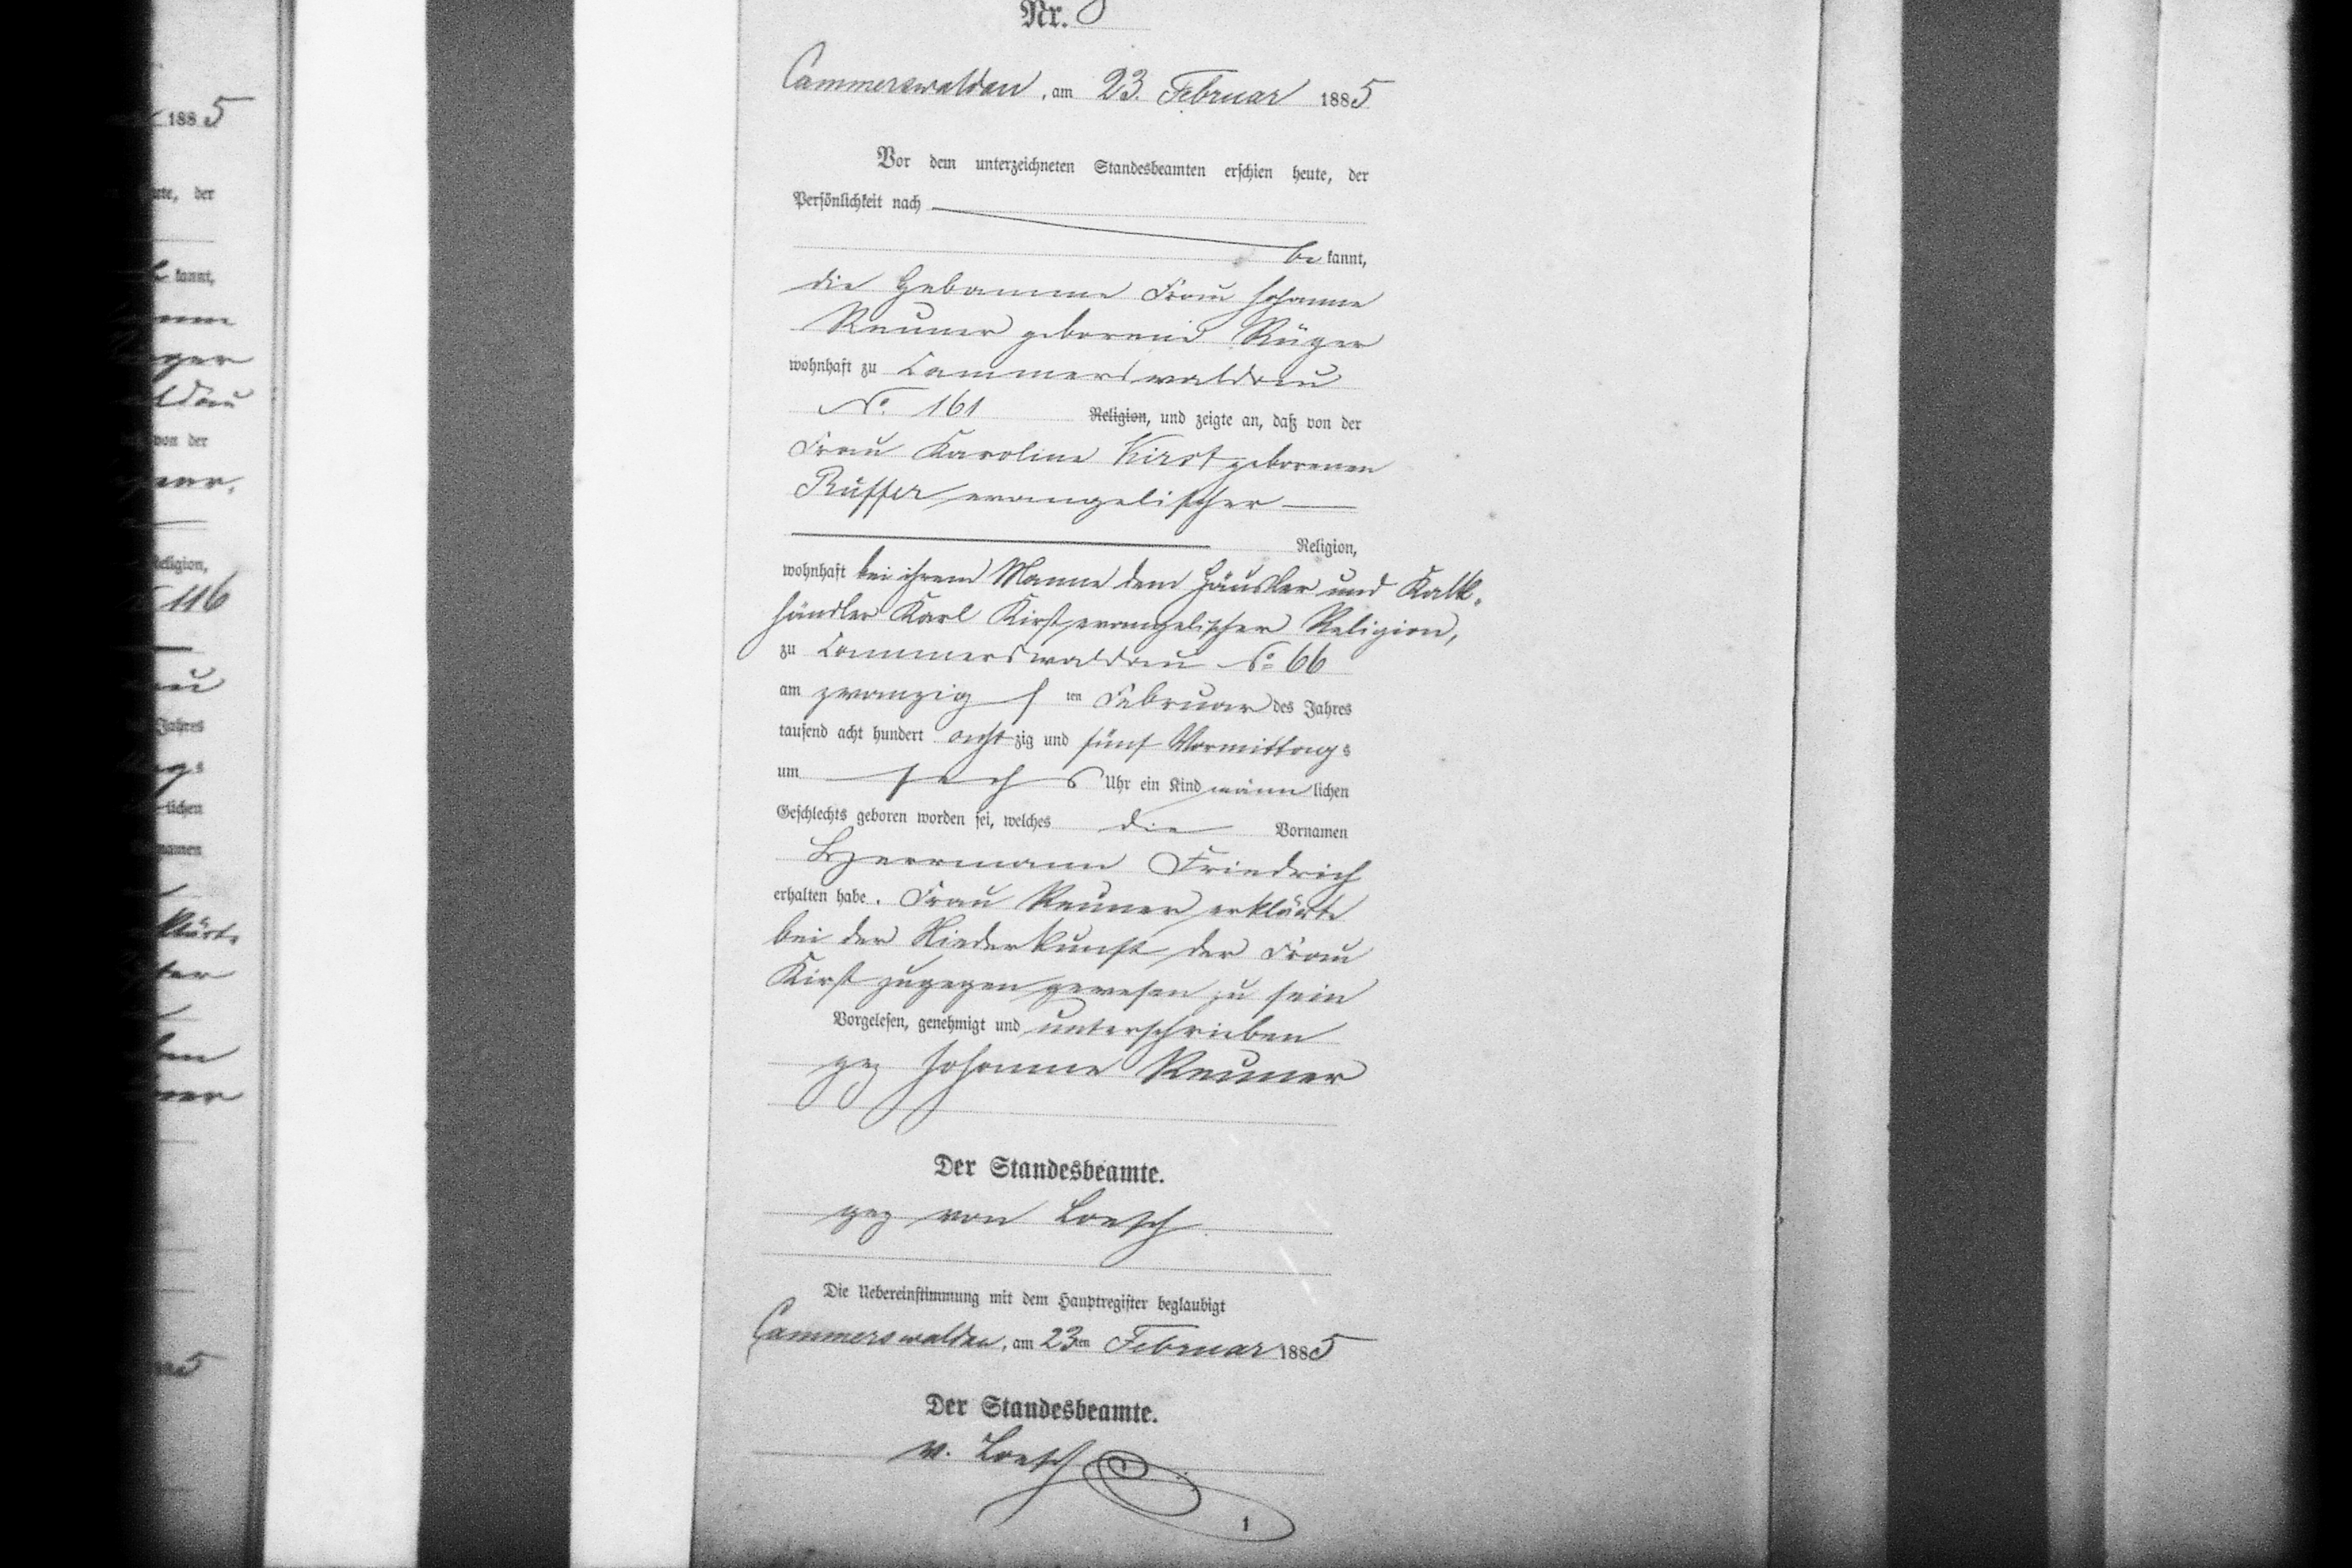 188 5
Nr.
Cammerswaldau, am 23. Februar 1885
Vor dem unterzeichneten Standesbeamten erschien heute, der
Persönlichkeit nach
be kannt,
die Hebamme Frau Johanne
Reuner geborene Rüger
wohnhaft zu Cammerswaldau
No. 161 Religion, und zeigte an, daß von der
Frau Karoline Kirst geborenen
Rüffer evangelischer
Religion,
wohnhaft bei ihrem Manne dem Häusler und Kalk-
händler Karl Kirst evangelischer Religion,
zu Cammerswaldau No 66
am zwanzigsten Februar des Jahres
tausend acht hundert achtzig und fünf Vormittags
um sechs Uhr ein Kind männlichen
Geschlechts geboren worden sei, welches die Vornamen
Herrmann Friedrich
erhalten habe. Frau Reuner erklärte
bei der Niederkunft der Frau
Kirst zugegen gewesen zu sein
Vorgelesen, genehmigt und unterschrieben
gez Johanne Reuner
Der Standesbeamte.
gez von Loesch
Die Uebereinstimmung mit dem Hauptregister beglaubigt
Cammerswaldau, am 23ten Februar 1885
Der Standesbeamte.
v. Loesch
1